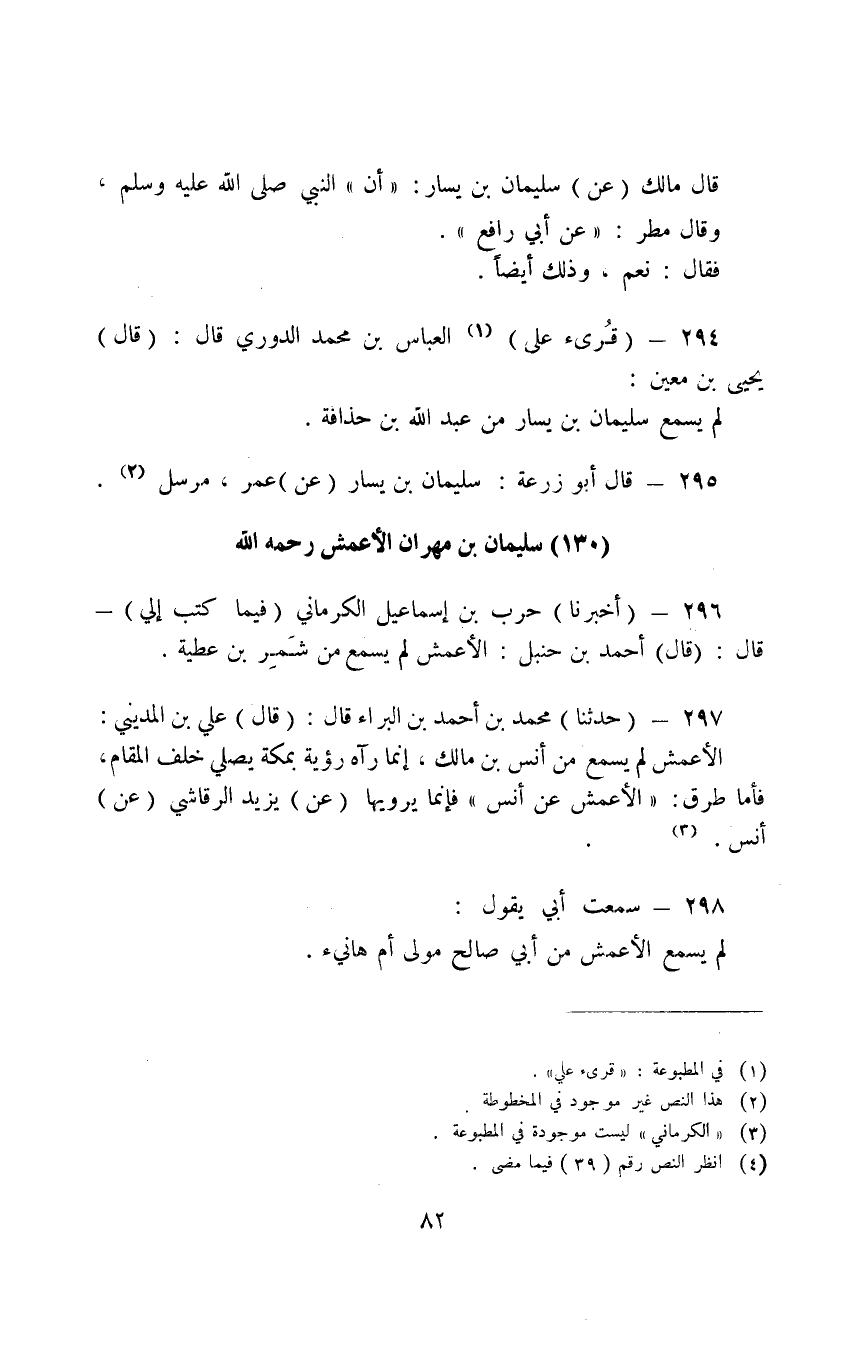 قال مالك ( عن ) سليمان بن يسار : « أن » النبي صلى الله عليه وسلم ،
وقال مطر : « عن أبي رافع » .
فقال : نعم ، وذلك أيضاً .
٢٩٤ – ( قُرىء على ) (١) العباس بن محمد الدوري قال : ( قال )
يحيى بن معين :
لم يسمع سليمان بن يسار من عبد الله بن حذافة .
٢٩٥ – قال أبو زرعة : سليمان بن يسار ( عن )عمر ، مرسل (٢) .
(١٣٠) سليمان بن مهران الأعمش رحمه الله
٢٩٦ – ( أخبرنا ) حرب بن إسماعيل الكرماني ( فيما كتب إلي ) –
قال : (قال) أحمد بن حنبل : الأعمش لم يسمع من شَمِر بن عطية .
٢٩٧ – ( حدثنا ) محمد بن أحمد بن البراء قال : ( قال ) علي بن المديني :
الأعمش لم يسمع من أنس بن مالك ، إنما رآه رؤية بمكة يصلي خلف المقام،
فأما طرق : « الأعمش عن أنس » فإنما يرويها ( عن ) يزيد الرقاشي ( عن )
أنس . (٣) .
٢٩٨ – سمعت أبي يقول :
لم يسمع الأعمش من أبي صالح مولى أم هانيء .
(١) في المطبوعة : « قرىء علي» .
(٢) هذا النص غير موجود في المخطوطة .
(٣) « الكرماني » ليست موجودة في المطبوعة .
(٤) انظر النص رقم ( ٣٩ ) فيما مضى .
٨٢